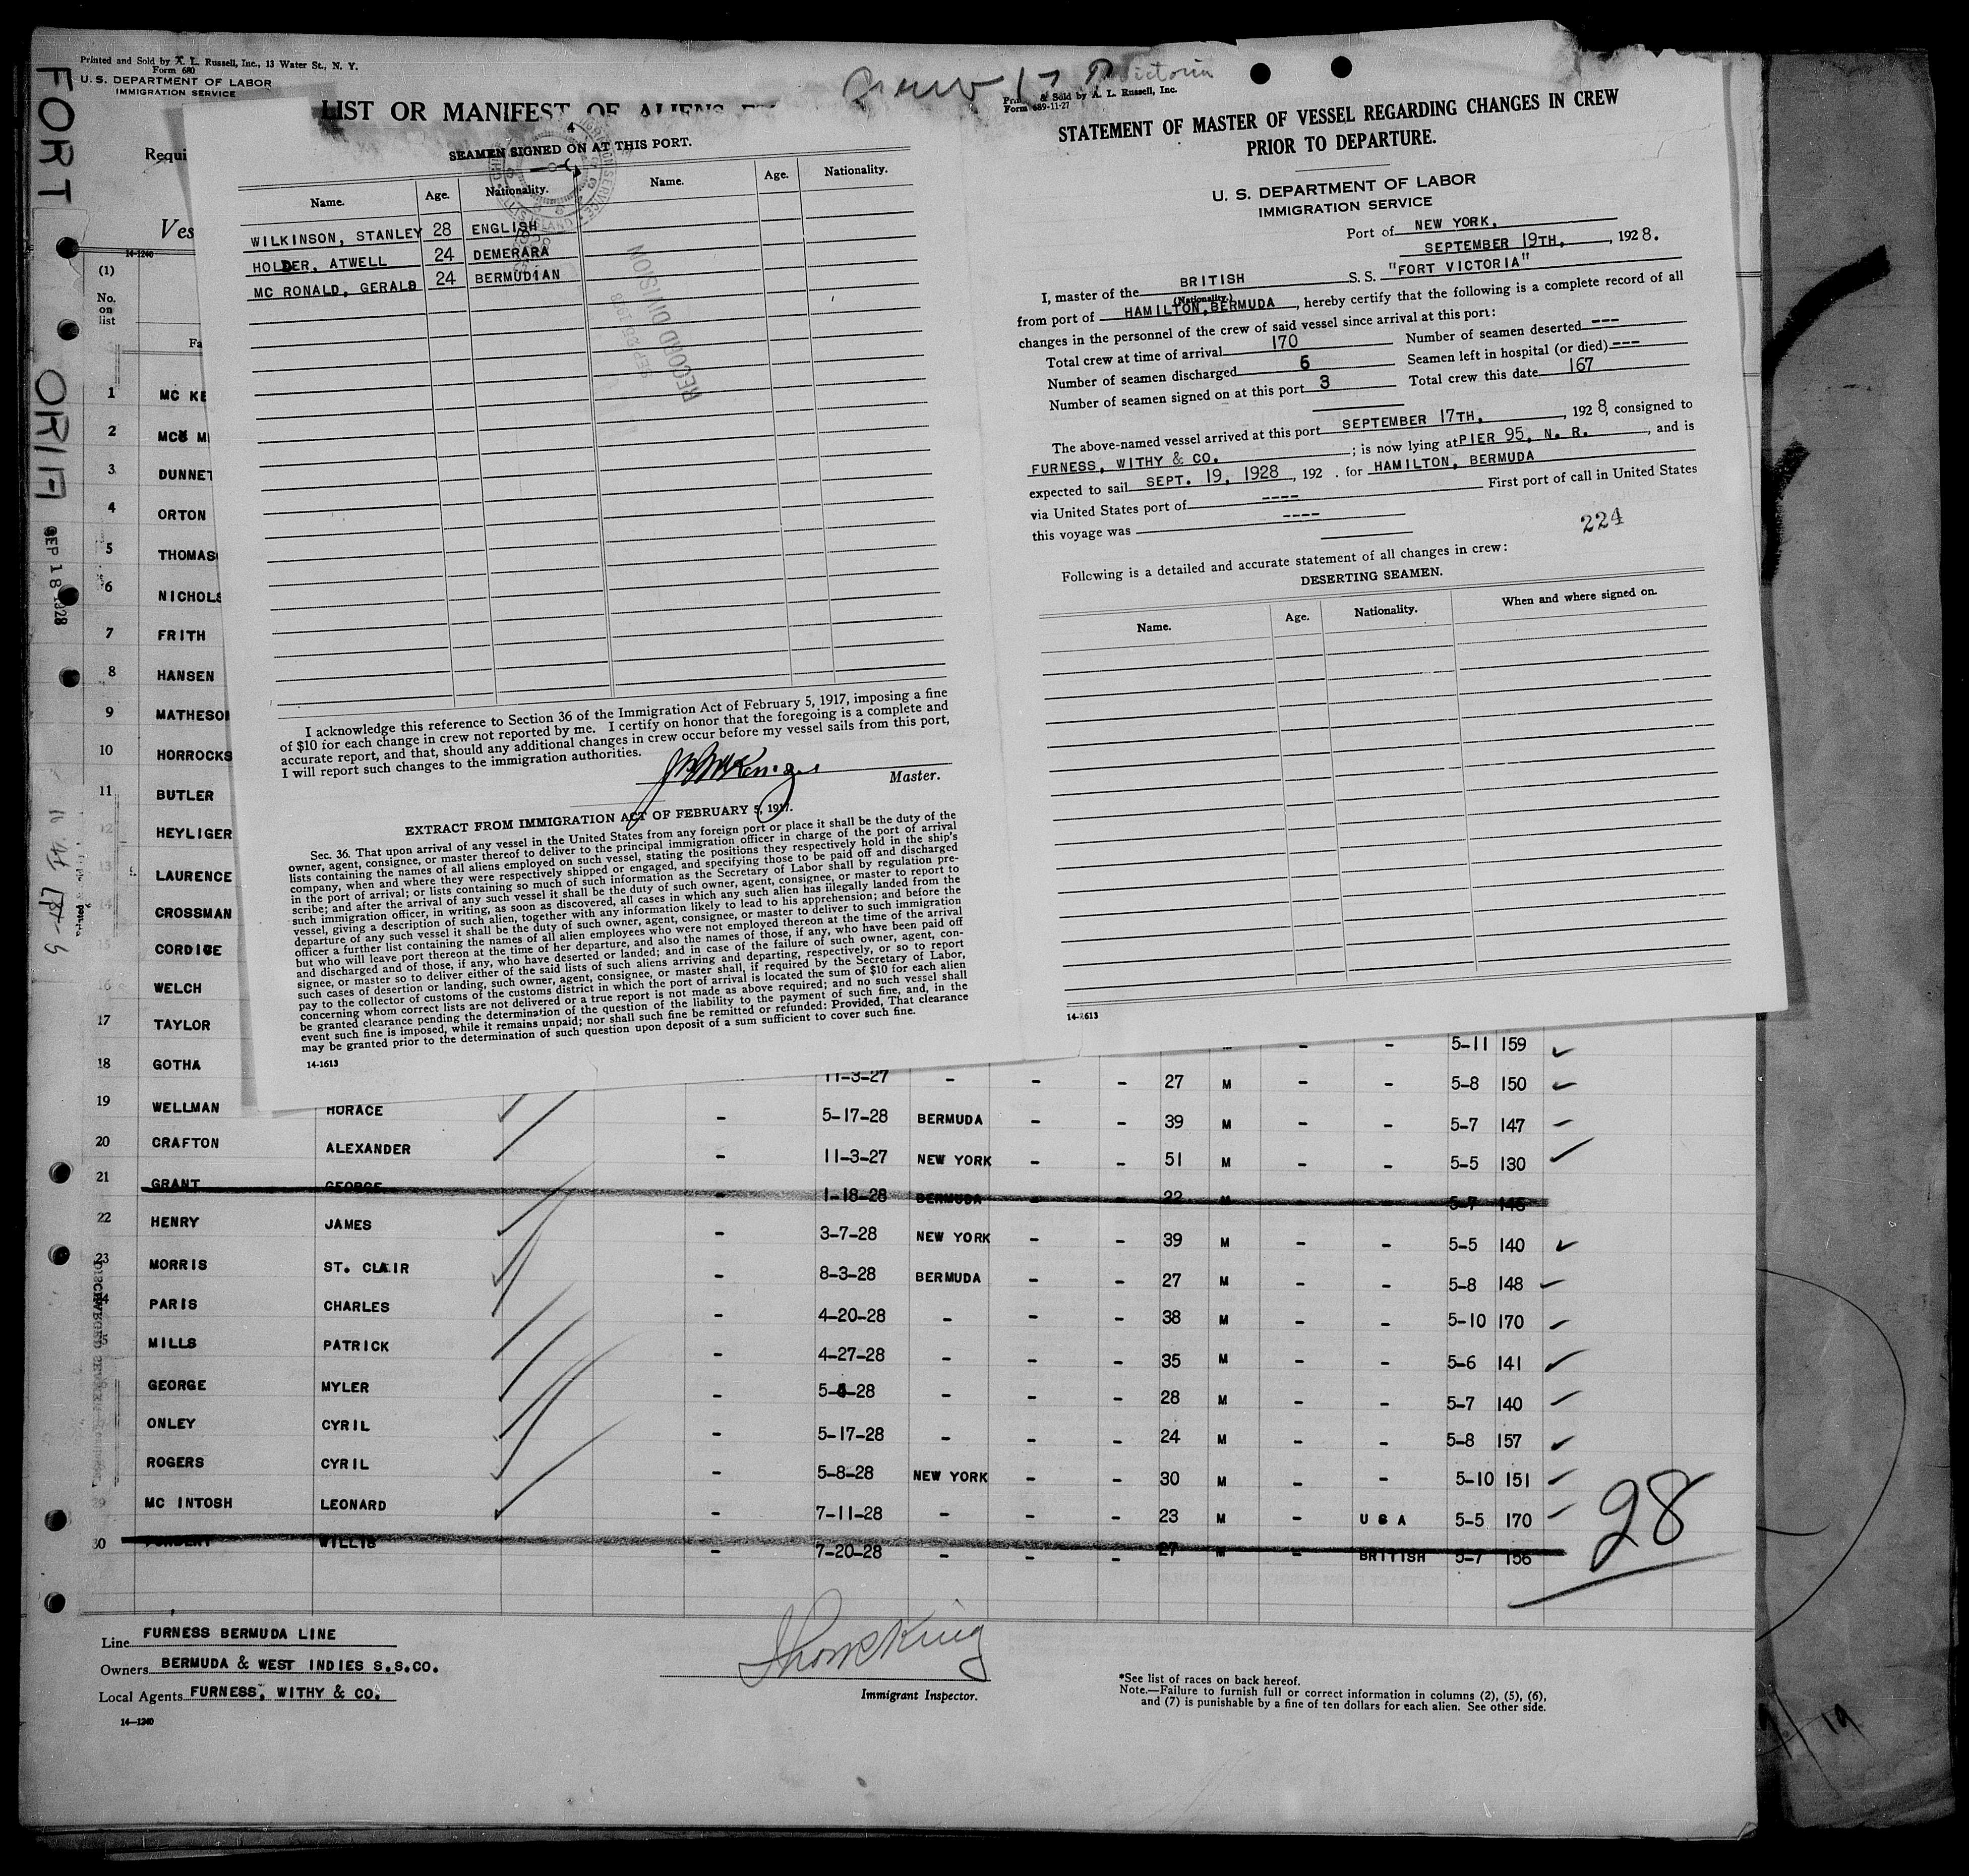 Printed and Sold by A. L. Russell, Inc., 13 Water St., N. Y.
Form 680
U. S. DEPARTMENT OF LABOR
IMMIGRATION SERVICE
FORT
SEP 18 1928
LIST OR MANIFEST OF ALIENS
Requi
Ves
14-1240
(1)
No.
on
list
Fa
1 MC KE
2 MC M
3 DUNNET
4 ORTON
5 THOMAS
6 NICHOLS
7 FRITH
8 HANSEN
9 MATHESO
10 HORROCKS
11 BUTLER
12 HEYLIGER
13 LAURENCE
14 CROSSMAN
15 CORDICE
16 WELCH
17 TAYLOR
18 GOTHA
4
SEAMEN SIGNED ON AT THIS PORT.
Name. Age. Nationality. Name. Age. Nationality.
WILKINSON, STANLEY 28 ENGLISH
HOLDER, ATWELL 24 DEMERARA
MC RONALD, GERALD 24 BERMUDIAN
RECORD DIVISION
SEP 25 1928
I acknowledge this reference to Section 36 of the Immigration Act of February 5, 1917, imposing a fine
of $10 for each change in crew not reported by me. I certify on honor that the foregoing is a complete and
accurate report, and that, should any additional changes in crew occur before my vessel sails from this port,
I will report such changes to the immigration authorities.
Master.
EXTRACT FROM IMMIGRATION ACT OF FEBRUARY 5, 1917.
Sec. 36. That upon arrival of any vessel in the United States from any foreign port or place it shall be the duty of the
owner, agent, consignee, or master thereof to deliver to the principal immigration officer in charge of the port of arrival
lists containing the names of all aliens employed on such vessel, stating the positions they respectively hold in the ship's
company, when and where they were respectively shipped or engaged, and specifying those to be paid off and discharged
in the port of arrival; or lists containing so much of such information as the Secretary of Labor shall by regulation pre-
scribe; and after the arrival of any such vessel it shall be the duty of such owner, agent, consignee, or master to report to
such immigration officer, in writing, as soon as discovered, all cases in which any such alien has illegally landed from the
vessel, giving a description of such alien, together with any information likely to lead to his apprehension; and before the
departure of any such vessel it shall be the duty of such owner, agent, consignee, or master to deliver to such immigration
officer a further list containing the names of all alien employees who were not employed thereon at the time of the arrival
but who will leave port thereon at the time of her departure, and also the names of those, if any, who have been paid off
and discharged and of those, if any, who have deserted or landed; and in case of the failure of such owner, agent, con-
signee, or master so to deliver either of the said lists of such aliens arriving and departing, respectively, or so to report
such cases of desertion or landing, such owner, agent, consignee, or master shall, if required by the Secretary of Labor,
pay to the collector of customs of the customs district in which the port of arrival is located the sum of $10 for each alien
concerning whom correct lists are not delivered or a true report is not made as above required; and no such vessel shall
be granted clearance pending the determination of the question of the liability to the payment of such fine, and, in the
event such fine is imposed, while it remains unpaid; nor shall such fine be remitted or refunded: Provided, That clearance
may be granted prior to the determination of such question upon deposit of a sum sufficient to cover such fine.
14-1613
Victoria
Printed & Sold by A. L. Russell, Inc.
Form 689-11-27
STATEMENT OF MASTER OF VESSEL REGARDING CHANGES IN CREW
PRIOR TO DEPARTURE.
U. S. DEPARTMENT OF LABOR
IMMIGRATION SERVICE
Port of NEW YORK,
SEPTEMBER 19TH, , 1928.
I, master of the BRITISH S. S. "FORT VICTORIA"
(Nationality.)
from port of HAMILTON, BERMUDA , hereby certify that the following is a complete record of all
changes in the personnel of the crew of said vessel since arrival at this port:
Total crew at time of arrival 170 Number of seamen deserted ---
Number of seamen discharged 6 Seamen left in hospital (or died) ---
Number of seamen signed on at this port 3 Total crew this date 167
The above-named vessel arrived at this port SEPTEMBER 17TH, , 1928, consigned to
FURNESS, WITHY & CO. ; is now lying at PIER 95, N. R. , and is
expected to sail SEPT. 19, 1928 , 192 . for HAMILTON, BERMUDA
via United States port of ---- First port of call in United States
this voyage was ----
224
Following is a detailed and accurate statement of all changes in crew:
DESERTING SEAMEN.
Name. Age. Nationality. When and where signed on.
14-1613
5-11 159
11-3-27 - - - 27 M - - 5-8 150
19 WELLMAN HORACE - 5-17-28 BERMUDA - - 39 M - - 5-7 147
20 CRAFTON ALEXANDER - 11-3-27 NEW YORK - - 51 M - - 5-5 130
21 GRANT GEORGE - 1-18-28 BERMUDA - - 22 M 5-7 145
22 HENRY JAMES - 3-7-28 NEW YORK - - 39 M - - 5-5 140
23 MORRIS ST. CLAIR - 8-3-28 BERMUDA - - 27 M - - 5-8 148
4 PARIS CHARLES - 4-20-28 - - - 38 M - - 5-10 170
5 MILLS PATRICK - 4-27-28 - - - 35 M - - 5-6 141
GEORGE MYLER - 5-4-28 - - - 28 M - - 5-7 140
ONLEY CYRIL - 5-17-28 - - - 24 M - - 5-8 157
ROGERS CYRIL - 5-8-28 NEW YORK - - 30 M - - 5-10 151
29 MC INTOSH LEONARD - 7-11-28 - - - 23 M - U S A 5-5 170
30 WILLIS - 7-20-28 - - - 27 M - BRITISH 5-7 156
28
Line FURNESS BERMUDA LINE
Owners BERMUDA & WEST INDIES S.S.CO.
Local Agents FURNESS, WITHY & CO.
14-1240
Immigrant Inspector.
*See list of races on back hereof.
Note.—Failure to furnish full or correct information in columns (2), (5), (6),
and (7) is punishable by a fine of ten dollars for each alien. See other side.
19